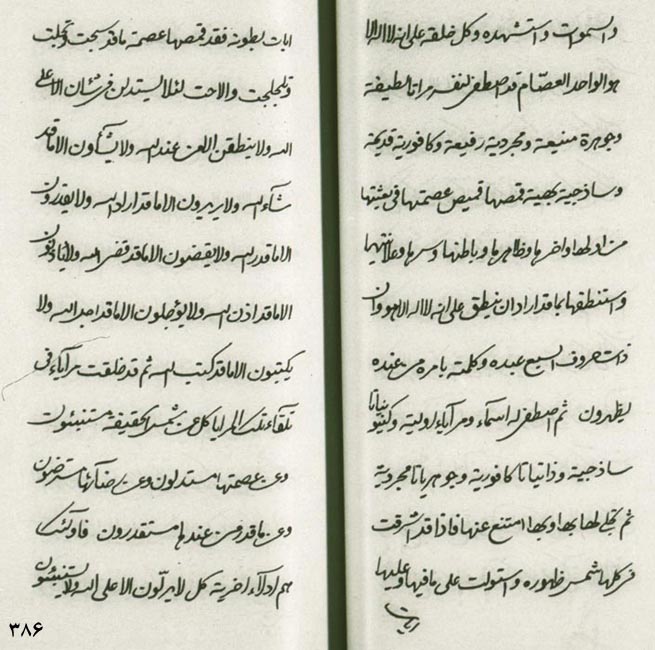 والسموات واستشهده وكل خلقه على انه لا اله الا
هو الواحد العصام قد اصطفى لنفسه مراتا لطيفة
وجوهرة منيعة ومجردية رفيعة وكافورية قديمة
وساذجية بهية قمصها قميص عصمتها فى بعثتها
من اولها واخرها وظاهرها وباطنها وسرها وعلانيتها
واستنطقها بما قد اراد ان ينطق على انه لا اله الا هو وان
ذات حروف السبع عبده وكلمته بامره من عنده
يظهرون ثم اصطفى له اسماء ومراياء اولية وكينونياتا
ساذجية وذاتياتا كافورية وجوهرياتا مجردية
ثم تجلى لها بها وبها امتنع عنها فاذا قد اشرقت
فى كلها شمس ظهوره واستولت على ما فيها وعليها
ايات
ايات بطونه فقد قمصها عصمة ما قد سبحت وتجلت
وتلجلجت والاحت لئلا يستدلن فى شان الا على
الله ولا ينطقن الا عن عند الله ولا يشاون الا ما قد
شاء الله ولا يريدون الا ما قد اراد الله ولا يقدرون
الا ما قدر الله ولا يقضون الا ما قد قضى الله ولا ياذنون
الا ما قد اذن الله ولا يؤجلون الا ما قد اجل الله ولا
يكتبون الا ما قد كتب الله ثم قد خلقت مراياء فى
تلقاء تلك المرايا كل عن شمس الحقيقة مستنبئون
وعن عصمتها مستدلون وعن رضائها مسترضون
وعن ما قد من عندها مستقدرون فاولئك
هم ادلاء اخرية كل لا يدلون الا على الله ولا يستنبئون
٣٨۶